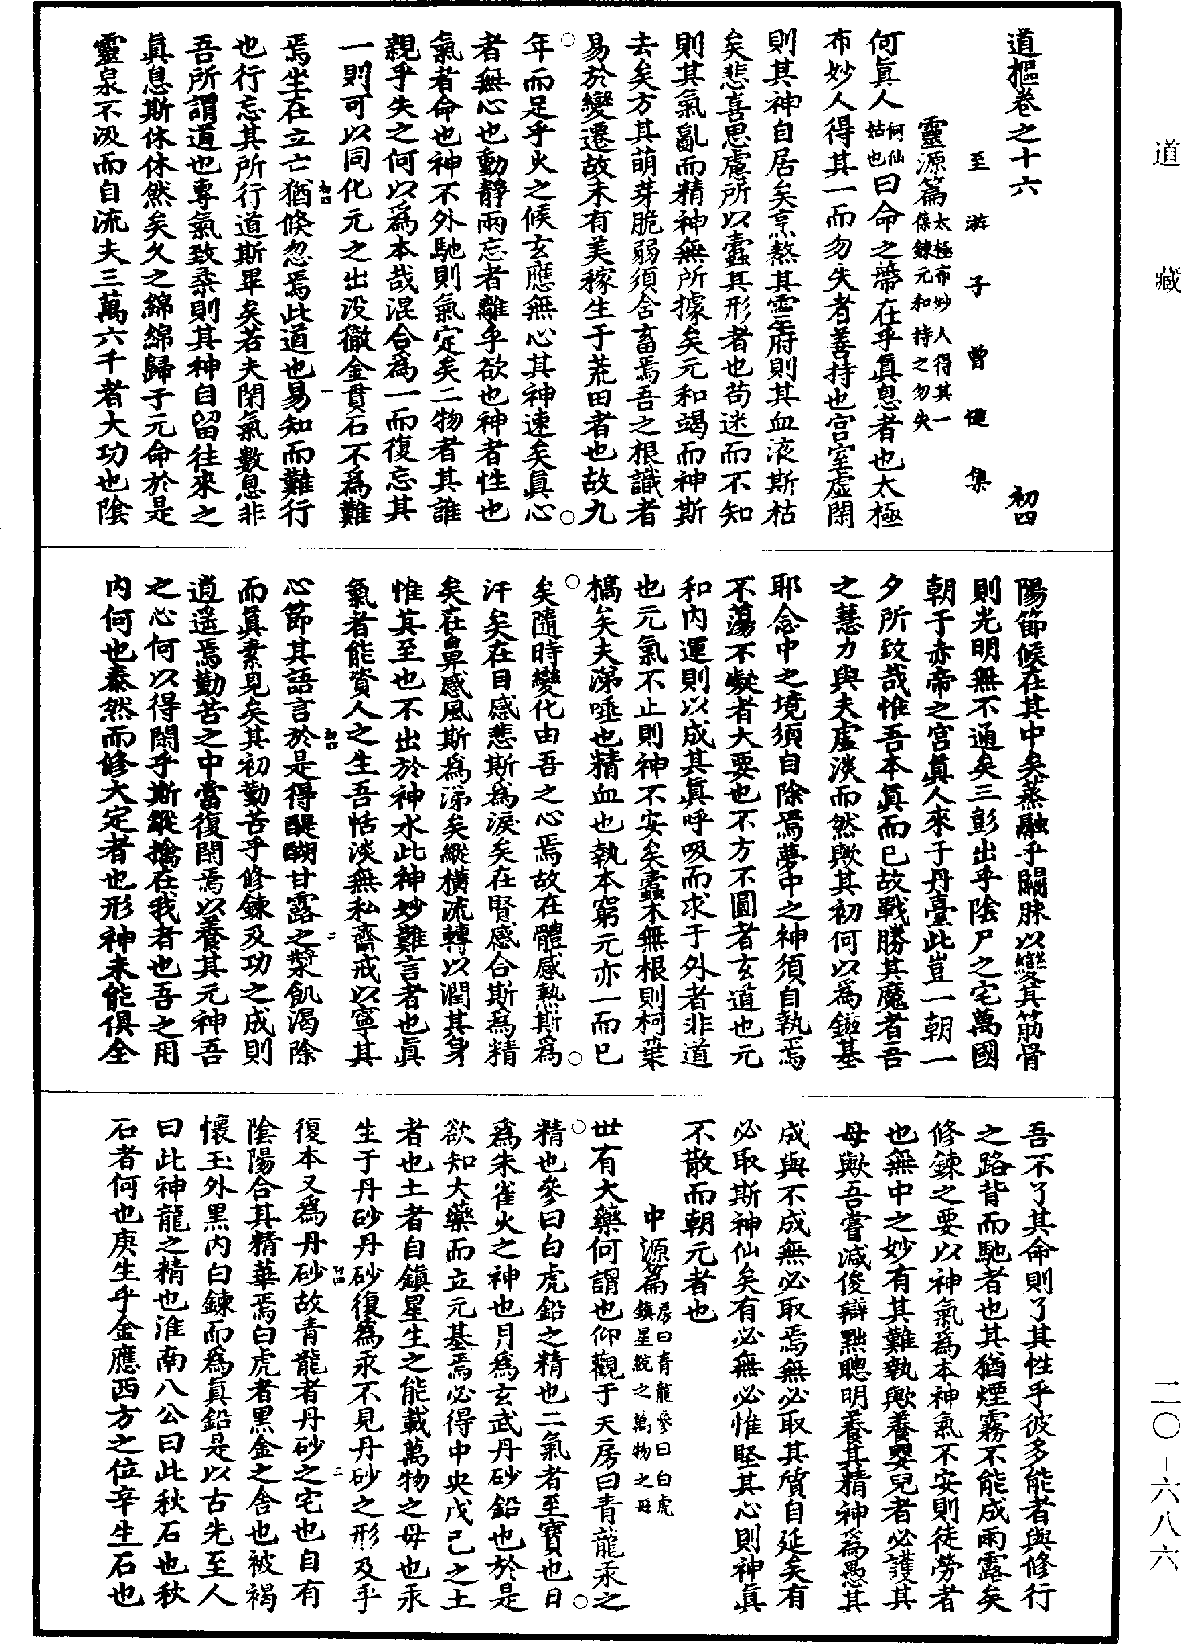 道藏
二〇－六八六
道樞卷之十六　初四
至游子曾慥集
靈源篇太極布妙人得其一保鍊元和持之勿失
何真人何仙姑也曰命之蒂在乎真息者也太極
布妙人得其一而勿失者善持也宮室虛閑
則其神自居矣烹熬其靈府則其血液斯枯
矣悲喜思慮所以蠹其形者也茍迷而不知
則其氣亂而精神無所據矣元和竭而神斯
去矣方其萌芽脆弱須含畜焉吾之根識者
易於變遷故未有美稼生于荒田者也故九
年而足乎火之候玄應無心其神速矣真心
者無心也動靜兩忘者離乎欲也神者性也
氣者命也神不外馳則氣定矣二物者其誰
親乎失之何以為本哉混合為一而復忘其
一則可以同化元之出没徹金貫石不為難
焉坐在立亡猶倏忽焉此道也易知而難行
也行忘其所行道斯畢矣若夫閉氣數息非
吾所謂道也專氣致柔則其神自留往來之
真息斯休休然矣久之綿綿歸于元命於是
靈泉不汲而自流夫三萬六千者大功也陰
陽節候在其中矣蒸融乎關脉以變其筋骨
則光明無不通矣三彭出乎陰尸之宅萬國
朝于赤帝之宮真人來于丹臺此豈一朝一
夕所致哉惟吾本真而已故戰勝其魔者吾
之慧力與夫虛淡而然歟其初何以為鉦基
耶念中之境須自除焉夢中之神須自執焉
不蕩不凝者大要也不方不圓者玄道也元
和內運則以成其真呼吸而求于外者非道
也元氣不止則神不安矣蠹木無根則柯葉
槁矣夫涕唾也精血也執本窮元亦一而已
矣隨時變化由吾之心焉故在體感熱斯為
汗矣在目感悲斯為淚矣在腎感合斯為精
矣在鼻感風斯為涕矣縱橫流轉以潤其身
惟其至也不出於神水此神妙難言者也真
氣者能資人之生吾恬淡無私齋戒以寧其
心節其語言於是得醍醐甘露之漿飢渴除
而真素見矣其初勤苦乎修鍊及功之成則
逍遥焉勤苦之中當復閑焉以養其元神吾
之心何以得閑乎斯縱擒在我者也吾之用
內何也泰然而修大定者也形神未能俱全
吾不了其命則了其性乎彼多能者與修行
之路背而馳者也其猶煙霧不能成雨露矣
修鍊之要以神氣為本神氣不安則徒勞者
也無中之妙有其難執歟養嬰兒者必護其
母歟吾嘗減俊辯黜聰明養其精神為愚其
成與不成無必取焉無必取其質自延矣有
必取斯神仙矣有必無必惟堅其心則神真
不散而朝元者也
中源篇房曰青龍參曰白虎鎮星統之萬物之母
世有大藥何謂也仰觀于天房曰青龍汞之
精也參曰白虎鉛之精也二氣者至寶也日
為朱雀火之神也月為玄武丹砂鉛也於是
欲知大藥而立元基焉必得中央戊己之土
者也土者自鎮星生之能載萬物之母也汞
生于丹砂丹砂復為汞不見丹砂之形及乎
復本又為丹砂故青龍者丹砂之宅也自有
陰陽合其精華焉白虎者黑金之舍也被褐
懷玉外黑內白鍊而為真鉛是以古先至人
曰此神龍之精也淮南八公曰此秋石也秋
石者何也庚生乎金應西方之位辛生石也